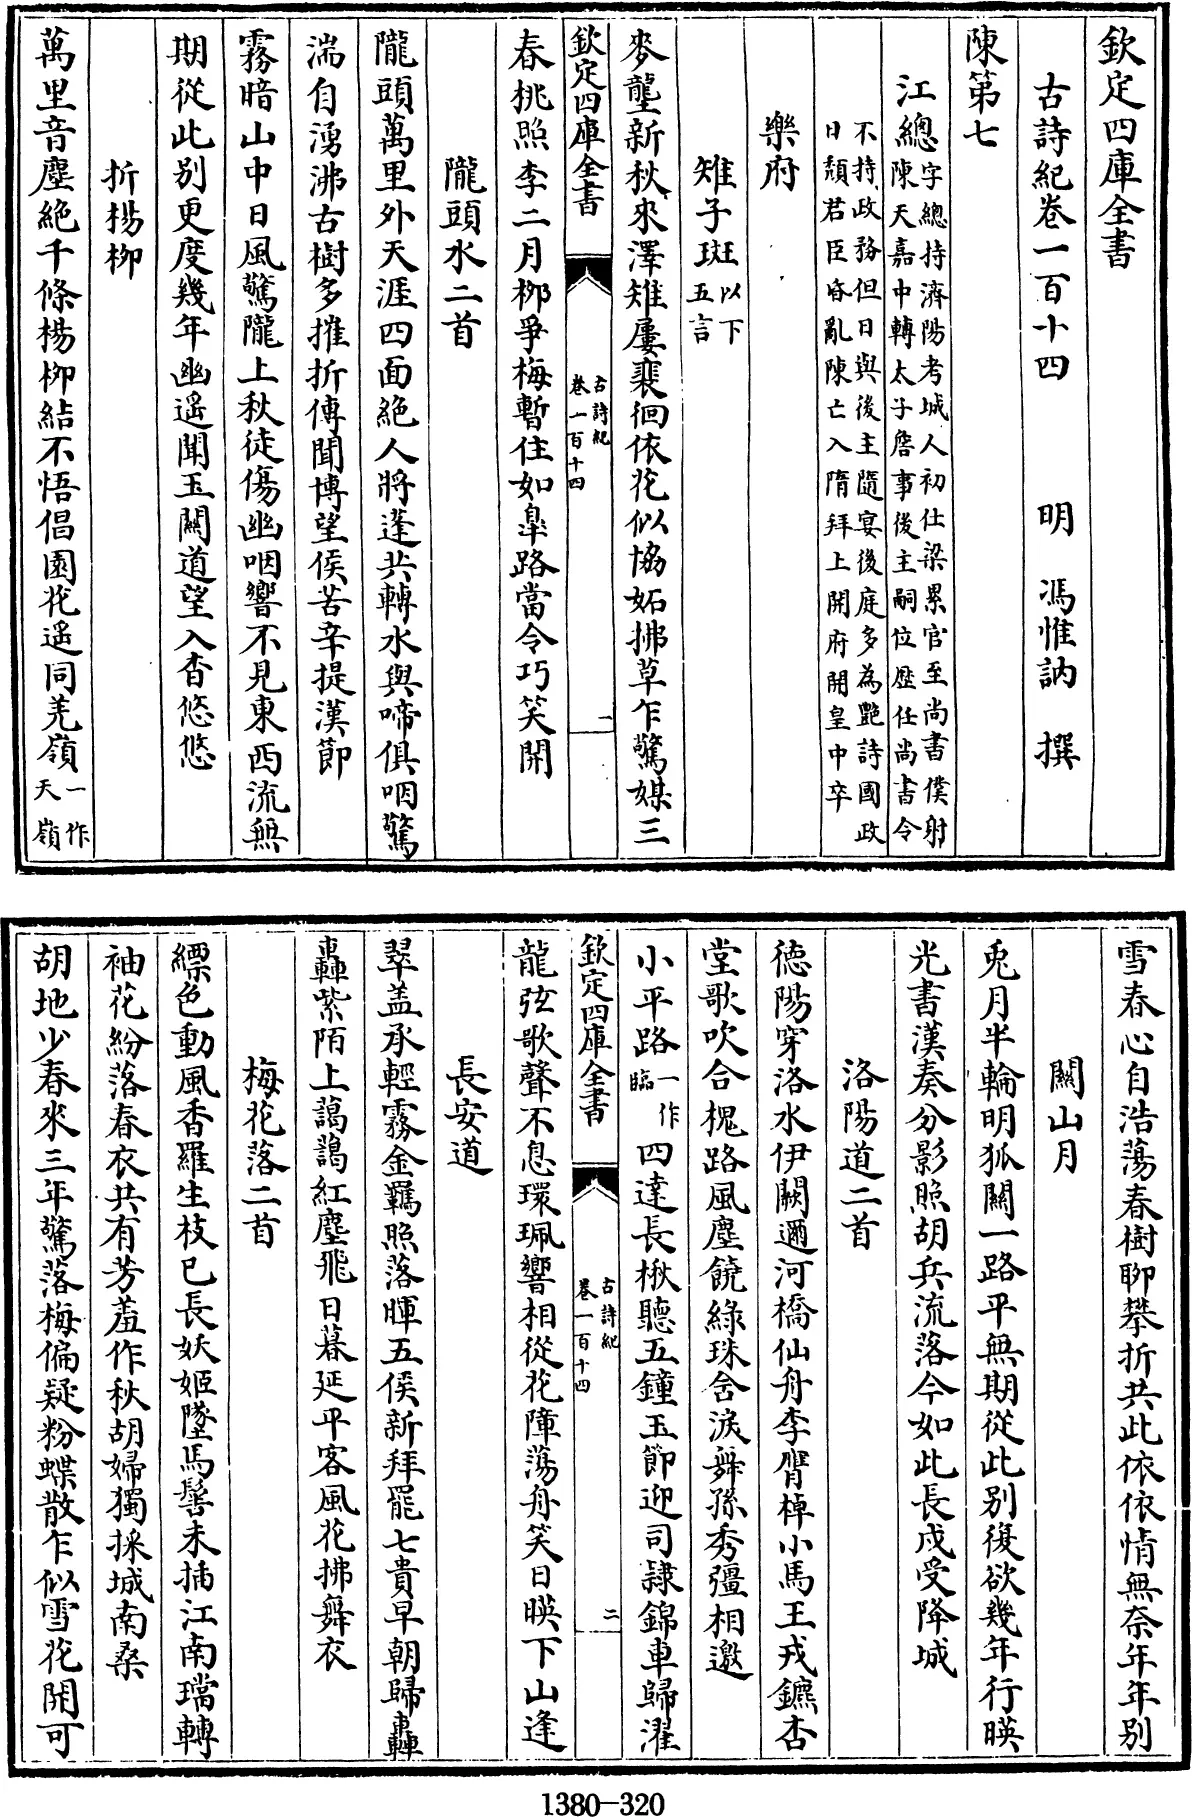 欽定四庫全書
古詩紀卷一百十四
明 馮惟訥 撰
陳第七
江總字總持濟陽考城人初仕梁累官至尚書僕射
陳天嘉中轉太子詹事後主嗣位歴任尚書令
不持政務但日與後主隨宴後庭多為艷詩國政
日頽君臣昏亂陳亡入隋拜上開府開皇中卒
樂府
雉子斑以下
五言
麥壟新秋來澤雉屢裵徊依花似恊妬拂草乍驚媒三
欽定四庫全書
古詩紀
卷一百十四
一
春桃照李二月柳爭梅暫住如臯路當令巧笑開
隴頭水二首
隴頭萬里外天涯四面絶人將蓬共轉水與啼俱咽驚
湍自湧沸古樹多摧折傳聞博望侯苦辛提漢節
霧暗山中日風驚隴上秋徒傷幽咽響不見東西流無
期從此别更度幾年幽遥聞玉闗道望入杳悠悠
折楊栁
萬里音塵絶千條楊栁結不悟倡園花遥同羌嶺一作
天嶺
雪春心自浩蕩春樹聊攀折共此依依情無奈年年别
闗山月
兎月半輪明狐闗一路平無期從此别復欲幾年行暎
光書漢奏分影照胡兵流落今如此長戍受降城
洛陽道二首
徳陽穿洛水伊闕邇河橋仙舟李膺棹小馬王戎鑣杏
堂歌吹合槐路風塵饒綠珠含淚舞孫秀彊相邀
小平路一作
臨四達長楸聽五鐘玉節迎司隸錦車歸濯
欽定四庫全書
古詩紀
卷一百十四
二
龍弦歌聲不息環珮響相從花障蕩舟笑日暎下山逢
長安道
翠盖承輕霧金羈照落暉五侯新拜罷七貴早朝歸轟
轟紫陌上藹藹紅塵飛日暮延平客風花拂舞衣
梅花落二首
縹色動風香羅生枝已長妖姬墜馬髻未插江南璫轉
袖花紛落春衣共有芳羞作秋胡婦獨採城南桑
胡地少春來三年驚落梅偏疑粉蝶散乍似雪花開可
1380-320